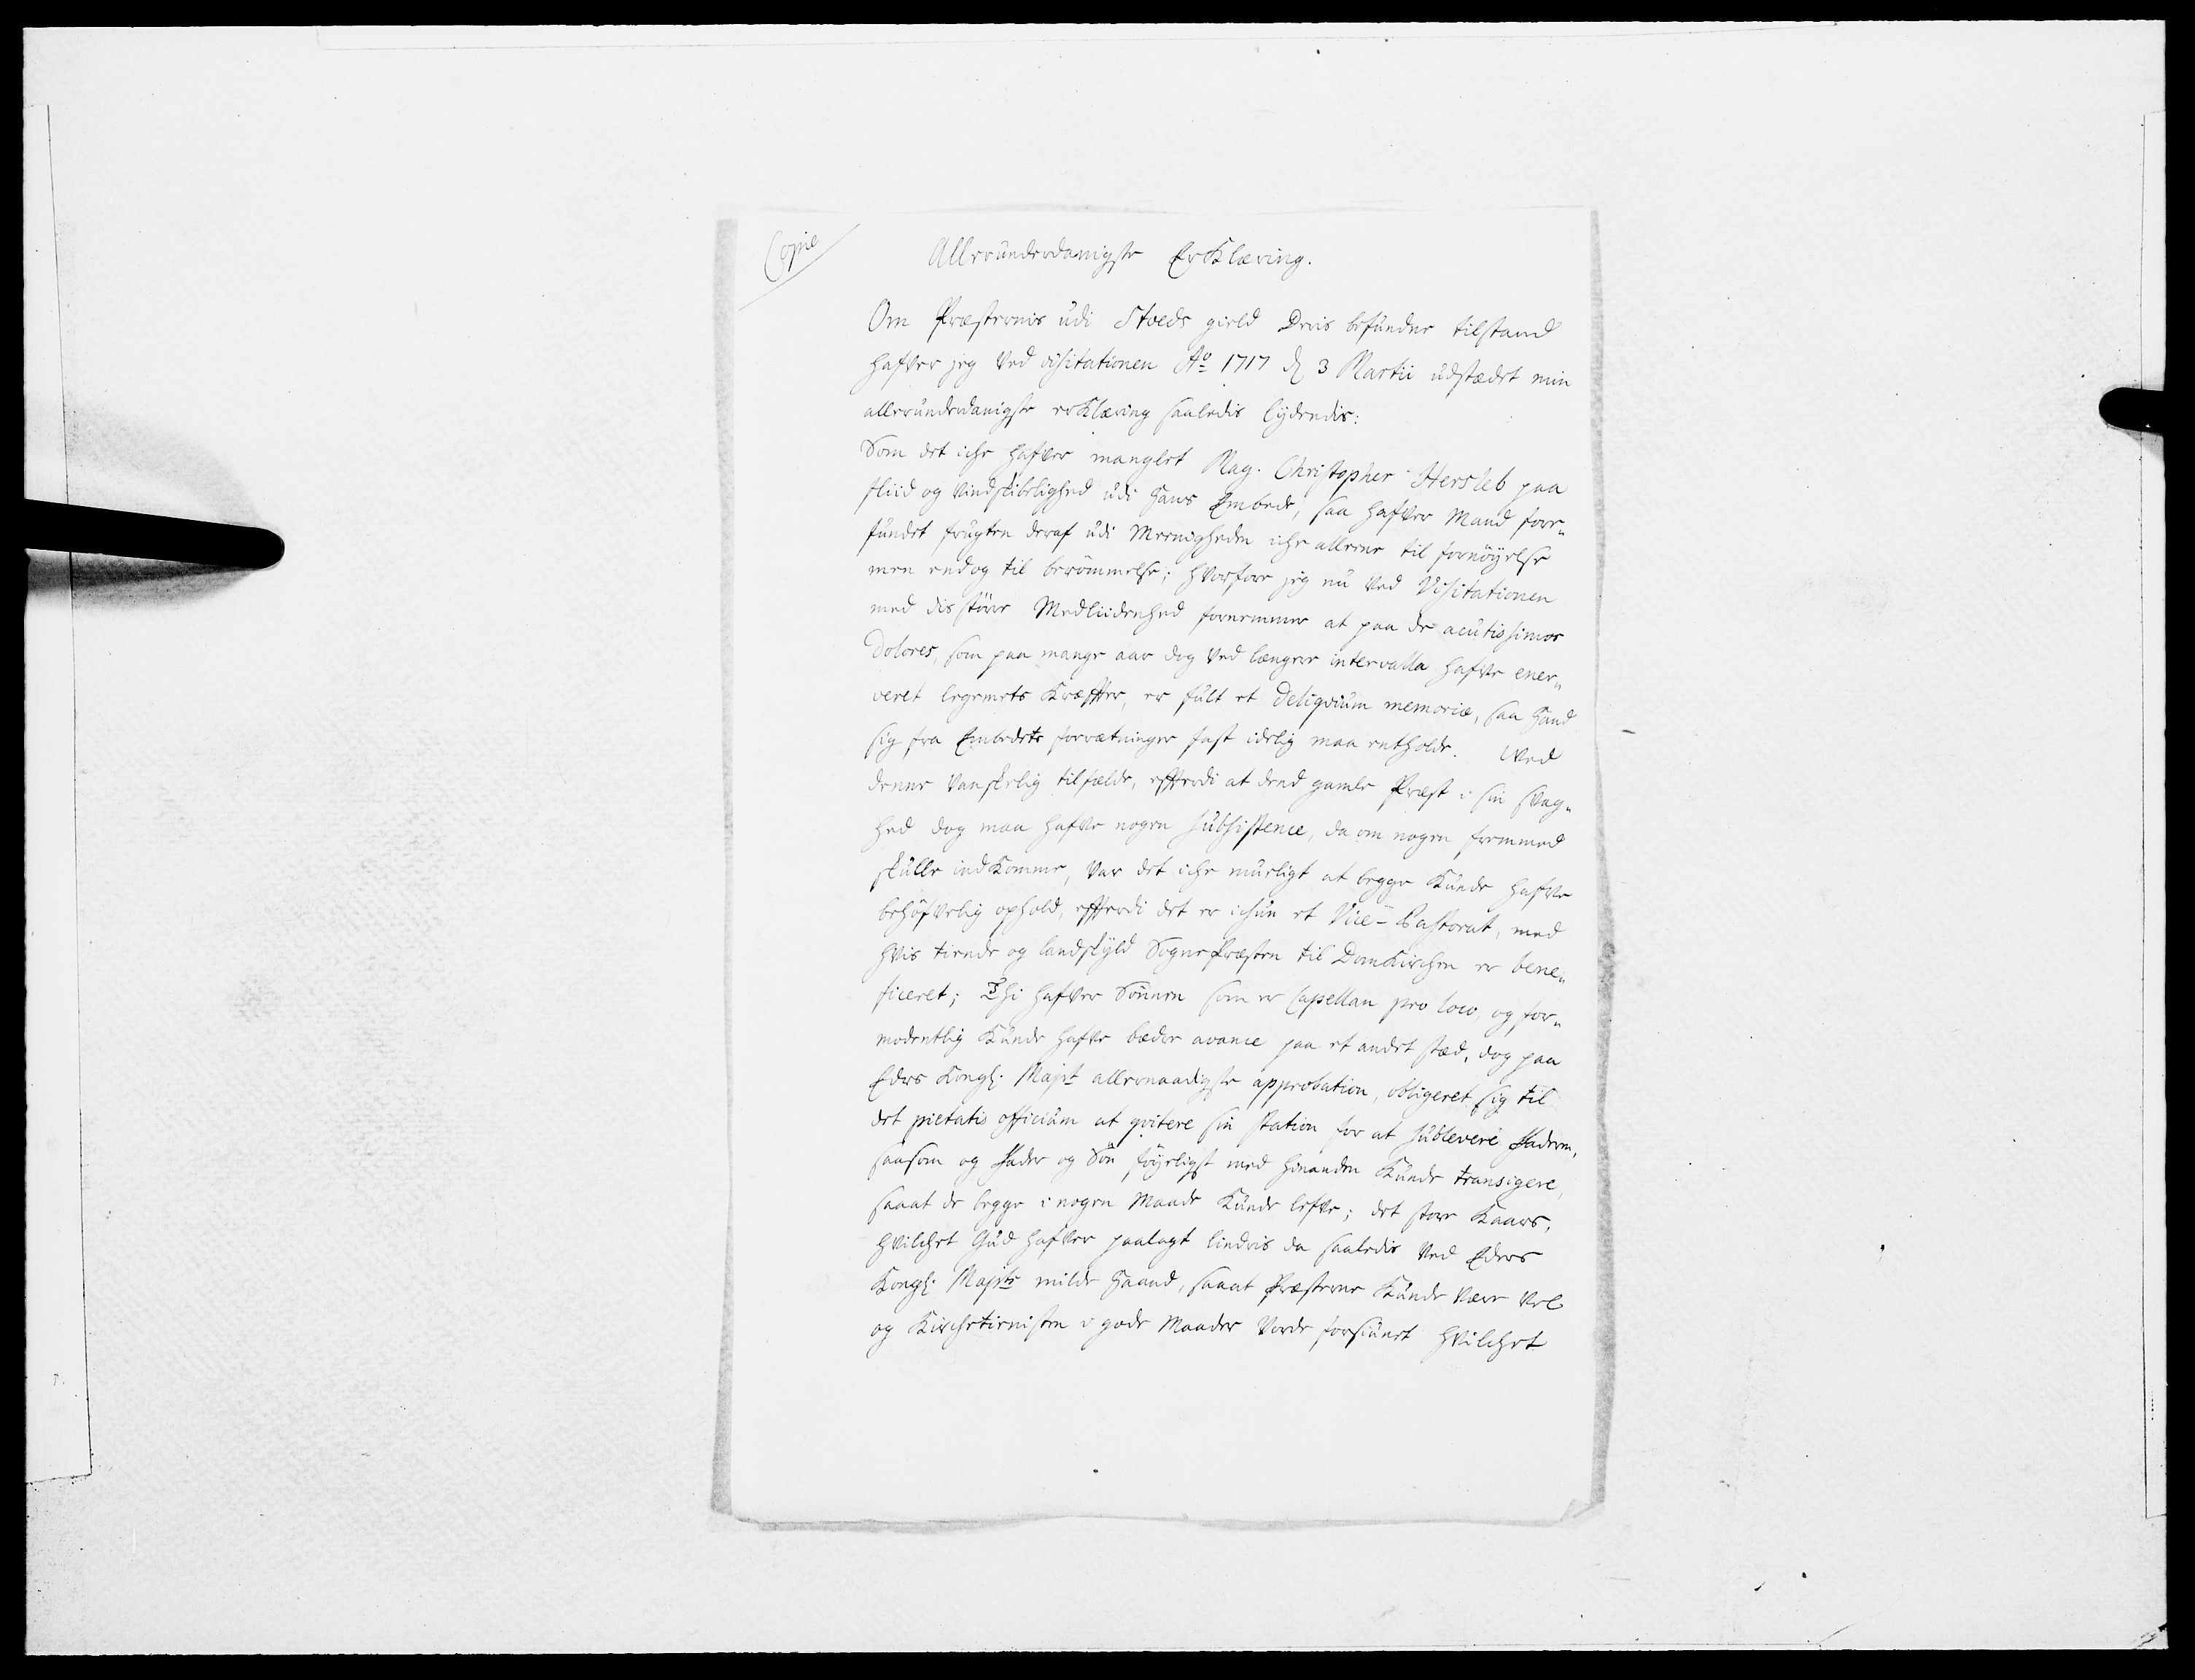 Copie
Allerunderdanigste ErKlæring.
Om Præsternis udi Stoeds gield Deris befundne tilstand
hafver jeg Ved visitationen Ao 1717 d 3 Martii udstædet min
allerunderdanigste erKlæring saaledis lydendis:
Som det iche hafver manglet Mag. Christopher Hersleb paa
fliid og Vindskibelighed udi Hans Embede, saa hafver Mand for„
fundet frugten deraf udi Meenigheden iche alleene til fornöyelse
men endog til berömmelse; hvorfore jeg nu Ved Visitationen
med dis störe Medliidenhed fornemmer at paa de acutissimos
dolores, som paa mange aar dog Ved længere intervalla hafve ener„
veret legemets Kræffter, er fult et deliqvium memoriæ, saa Hand
sig fra Embedets forrætninger fast idelig maa entholde. Ved
denne Vanskelig tilfælde, effterdi at dend gamle Præst i sin svag„
hed dog maa hafve nogen subsistence, da om nogen fremmed
skulle indKomme, Var det iche mueligt at begge Kunde hafve
behöfvelig ophold, effterdi det er ichun et Vice-Pastorat, med
hvis tiende og landskyld SognePræsten til DomKirchen er bene„
ficeret; Thi hafver Sönnen som er Capellan pro loco, og for„
modentlig Kunde hafve bædre avance paa et andet stæd, dog paa
Eders Kongl: Majt allernaadigste approbation, obligeret sig til
det pietatis officium at qvitere sin station for at sublevere Faderen,
saasom og Fader og Sön föyeligst med hinanden Kunde transigere,
saaat de begge i nogen Maade Kunde lefve; det store Kaars,
hvilchet Gud hafver paalagt lindris da saaledis Ved Eders
Kongl: Majts milde Haand, saaat Præsterne Kunde Være Vel
og Kirchetienisten i gode Maader Vorde forsiunet hvilchet